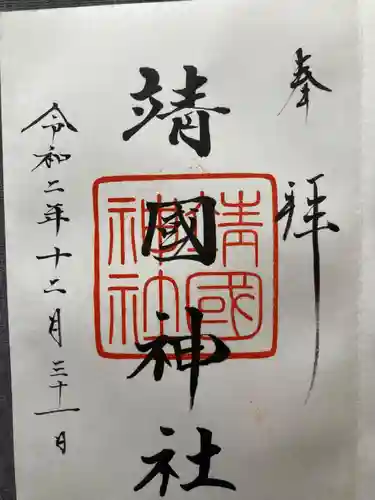 奉拝
靖國神社
靖國神社
令和二年十二月三十一日